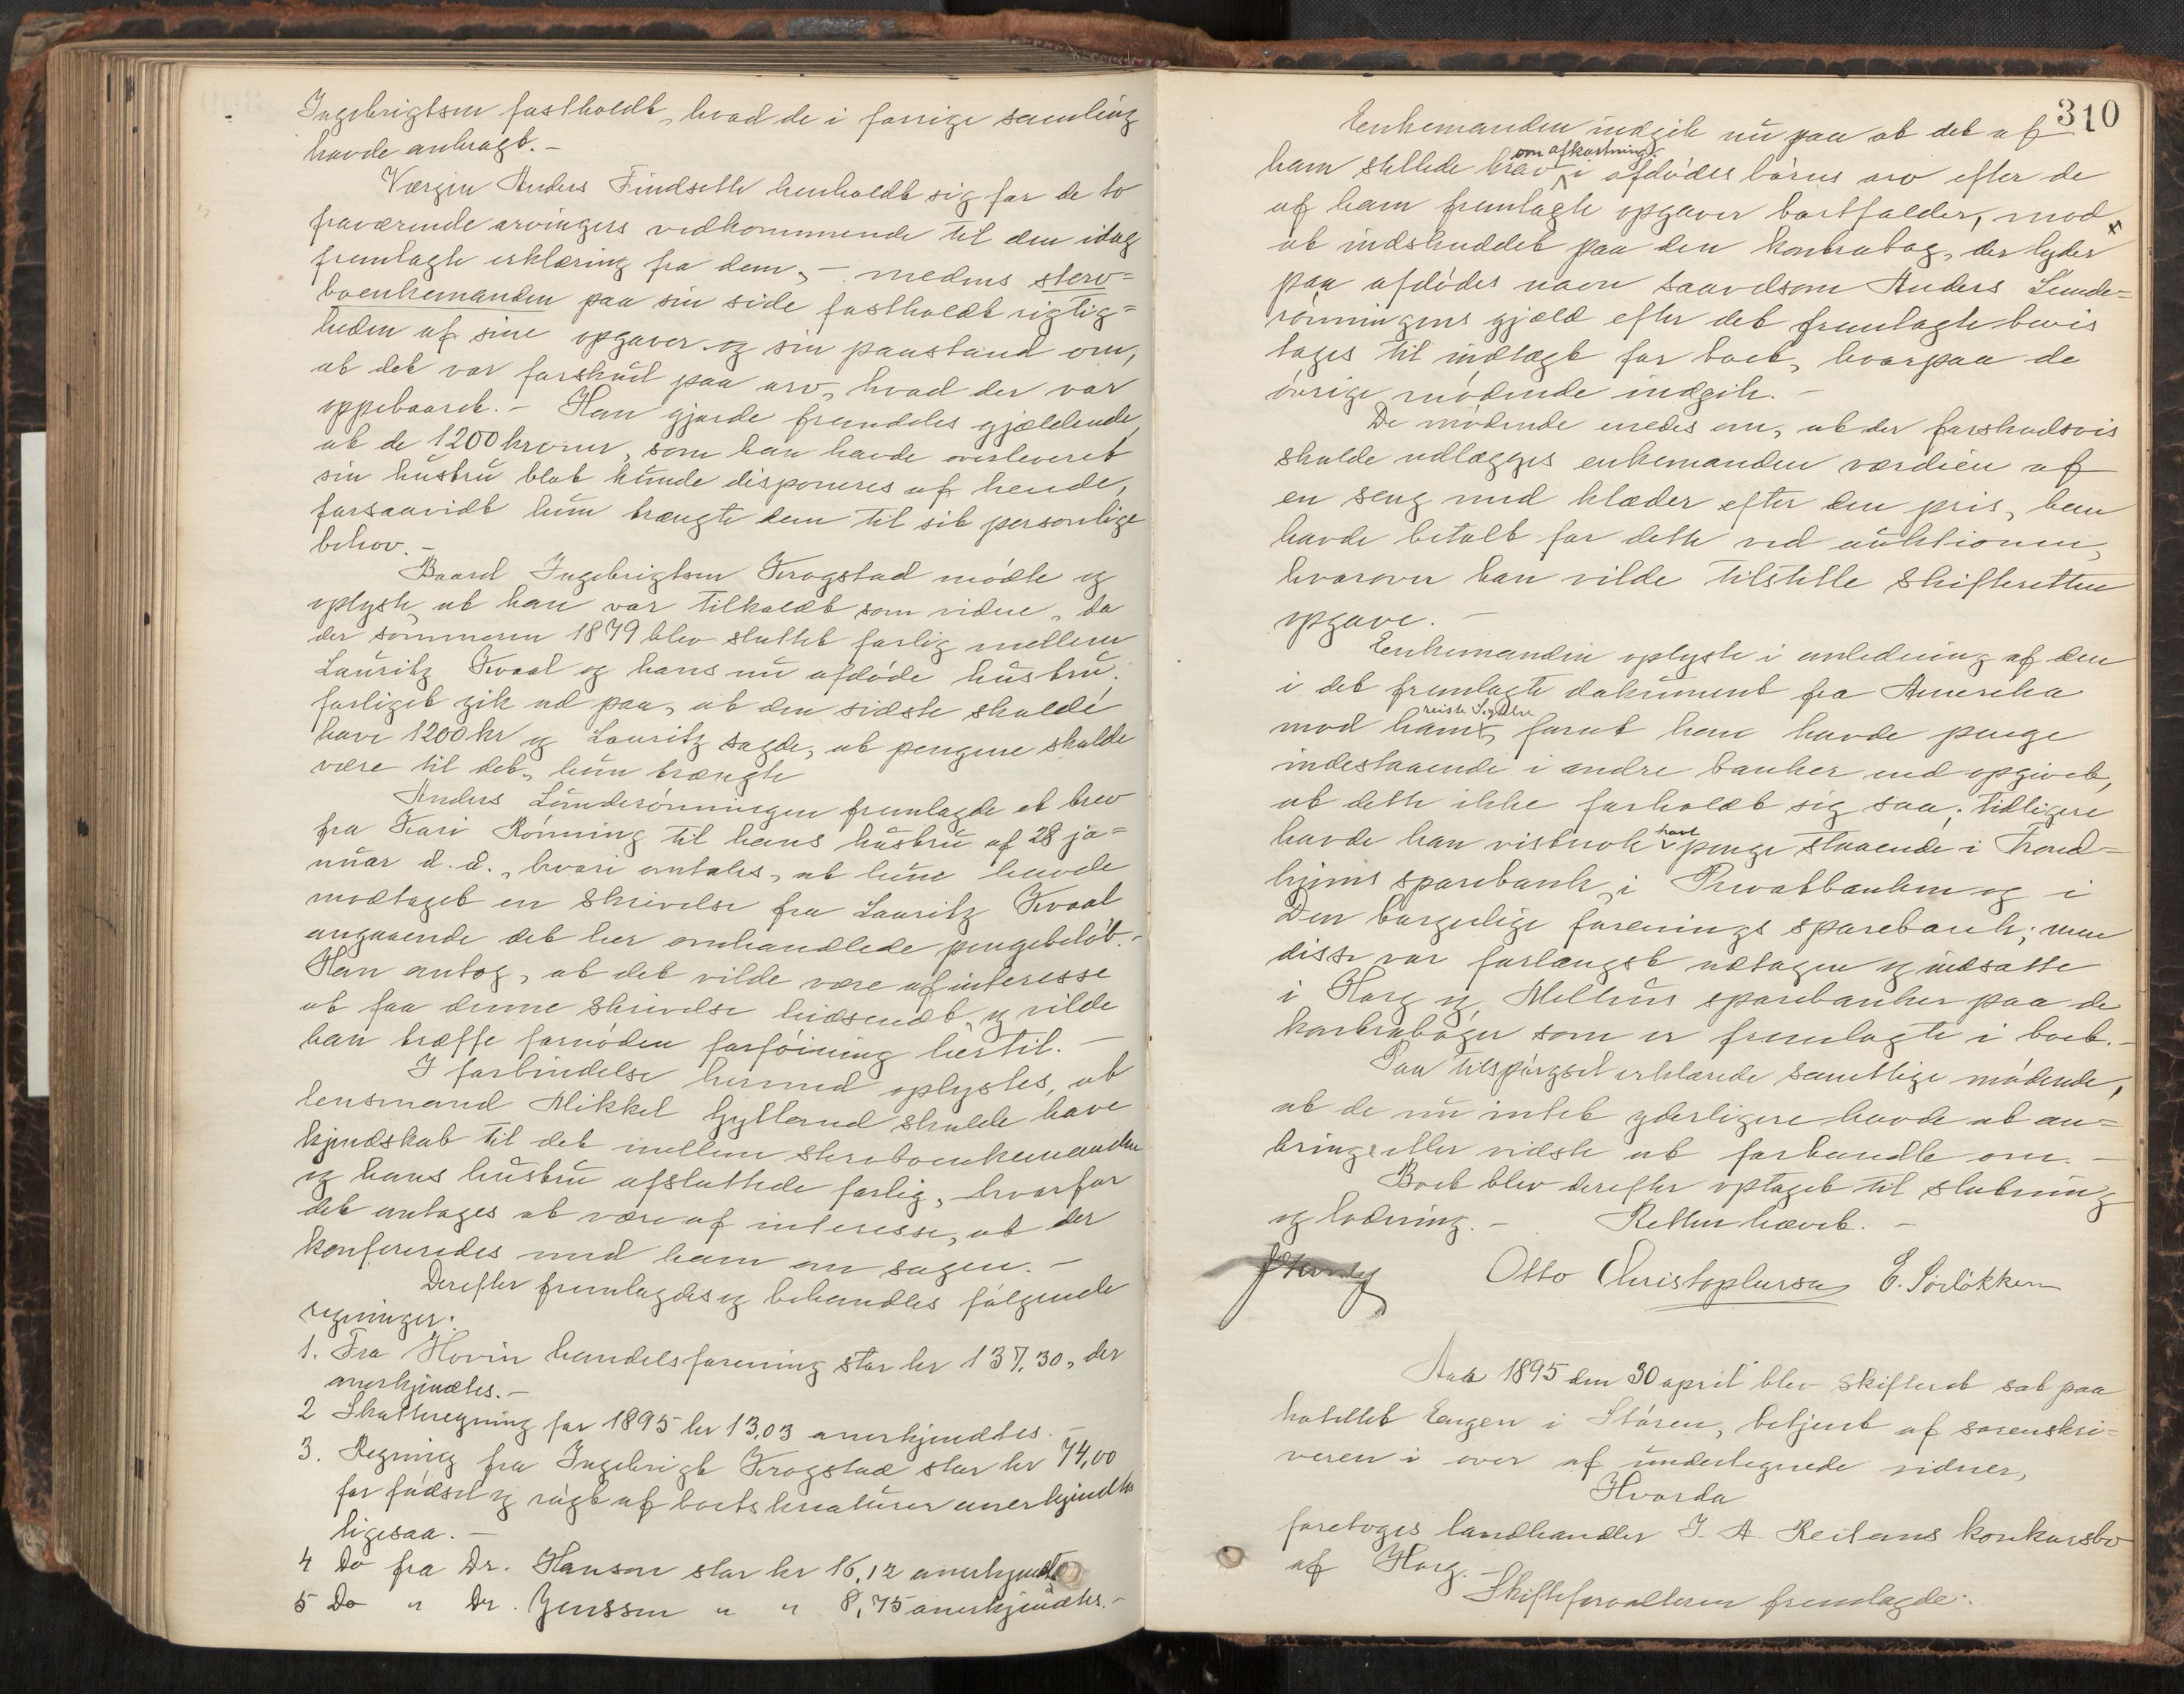 Ingebrigtsen fastholdt, hvad de i forrige samling
havde anbragt. –
Værgen Anders Findsethe henholdt sig for de to
fraværende arvingers vedkommende til den idag
fremlagte erklæring fra dem, – medens sterv=
boenkemanden paa sin side fastholdt rigtig=
heden af sine opgaver og sin paastand om,
at det var forskud paa arv, hvad der var
oppebaaret. – Han gjorde fremdeles gjældende,
at de 1200 kroner, som han havde overleveret
sin hustru blot kunde disponeres af hende,
forsaavidt hun trængte dem til sit personlige
behov. –
Baard Ingebrigtsen Krogstad mødte og
oplyste, at han var tilkaldt som vidne, da
der sommeren 1879 blev sluttet forlig mellem
Lauritz Kvaal og hans nu afdøde hustru.
forliget gik ud paa, at den sidste skulde
have 1200 kr og Lauritz sagde, at pengene skulde
være til det, hun trængte
Anders Lunderønningen fremlagde et brev
fra Kari Rønning til hans hustru af 28 ja=
nuar d. a., hvori omtales, at hun havde
modtaget en skrivelse fra Lauritz Kvaal
angaaende det her omhandlede pengebeløb. –
Han antog, at det vilde være af interesse
at faa denne skrivelse hidsendt, og vilde
han træffe fornøden forføining hertil. –
I forbindelse hermed oplystes, at
lensmand Mikkel Gylland skulde have
kjendskab til det mellem stervboenkemanden
og hans hustru afsluttede forlig, hvorfor
det antages at være af interesse, at der
konfereredes med ham om sagen. –
Derefter fremlagdes og behandles følgende
regninger:
1. Fra Hovin handelsforening stor kr 137,30, der
anerkjendtes. –
2 Skatteregning for 1895 kr 13,03 anerkjendtes. –
3. Regning fra Ingebrigt Krogstad stor kr 74,00
for fødsel og røgt af boets kreaturer anerkjendtes
ligesaa. –
4 Do fra Dr. Hanson stor kr 16,12 anerkjendt
5 Do " Dr. Jenssen " " 8,75 anerkjendtes. –
310
Enkemanden indgik nu paa at det af
ham stillede krav om afkortning i afdødes børns arv efter de
af ham fremlagte opgaver bortfalder, mod
at indskuddet paa den kontrabog, der lyder
paa afdødes navn saavelsom Anders Lunde=
rønningens gjæld efter det fremlagte bevis
tages til indtægt for boet, hvorpaa de
øvrige mødende indgik. –
De mødende enedes om, at der forskudsvis
skulde udlægges enkemanden værdien af
en seng med klæder efter den pris, han
havde betalt for dette ved auktionen,
hvorover han vilde tilstille skifteretten
opgave. –
Enkemanden oplyste i anledning af den
i det fremlagte dokument fra Amerika
mod ham reiste Sigtelse, for at han havde penge
indestaaende i andre banker end opgivet,
at dette ikke forholdt sig saa; tidligere
havde han vistnok havt penge staaende i Trond=
hjems sparebank, i Privatbanken og i
Den borgerlige forenings sparebank; men
disse var forlængst udtagen og indsatte
i Horg og Melhus sparebanker paa de
kontrabøger som er fremlagte i boet. –
Paa tilspørgsel erklærede samtlige mødende,
at de nu intet yderligere havde at an=
bringe eller vidste at forhandle om. –
Boet blev derefter optaget til slutning
og lodning. – Retten hævet. –
Otto Christophersen E. Sørløkken
Aar 1895 den 30 april blev skifteret sat paa
hotellet Engen i Støren, betjent af sorenskri=
veren i over af undertegnede vidner,
Hvorda
foretoges landhandler J. A. Reitans konkursbo
af Horg. –
Skifteforvalteren fremlagde: